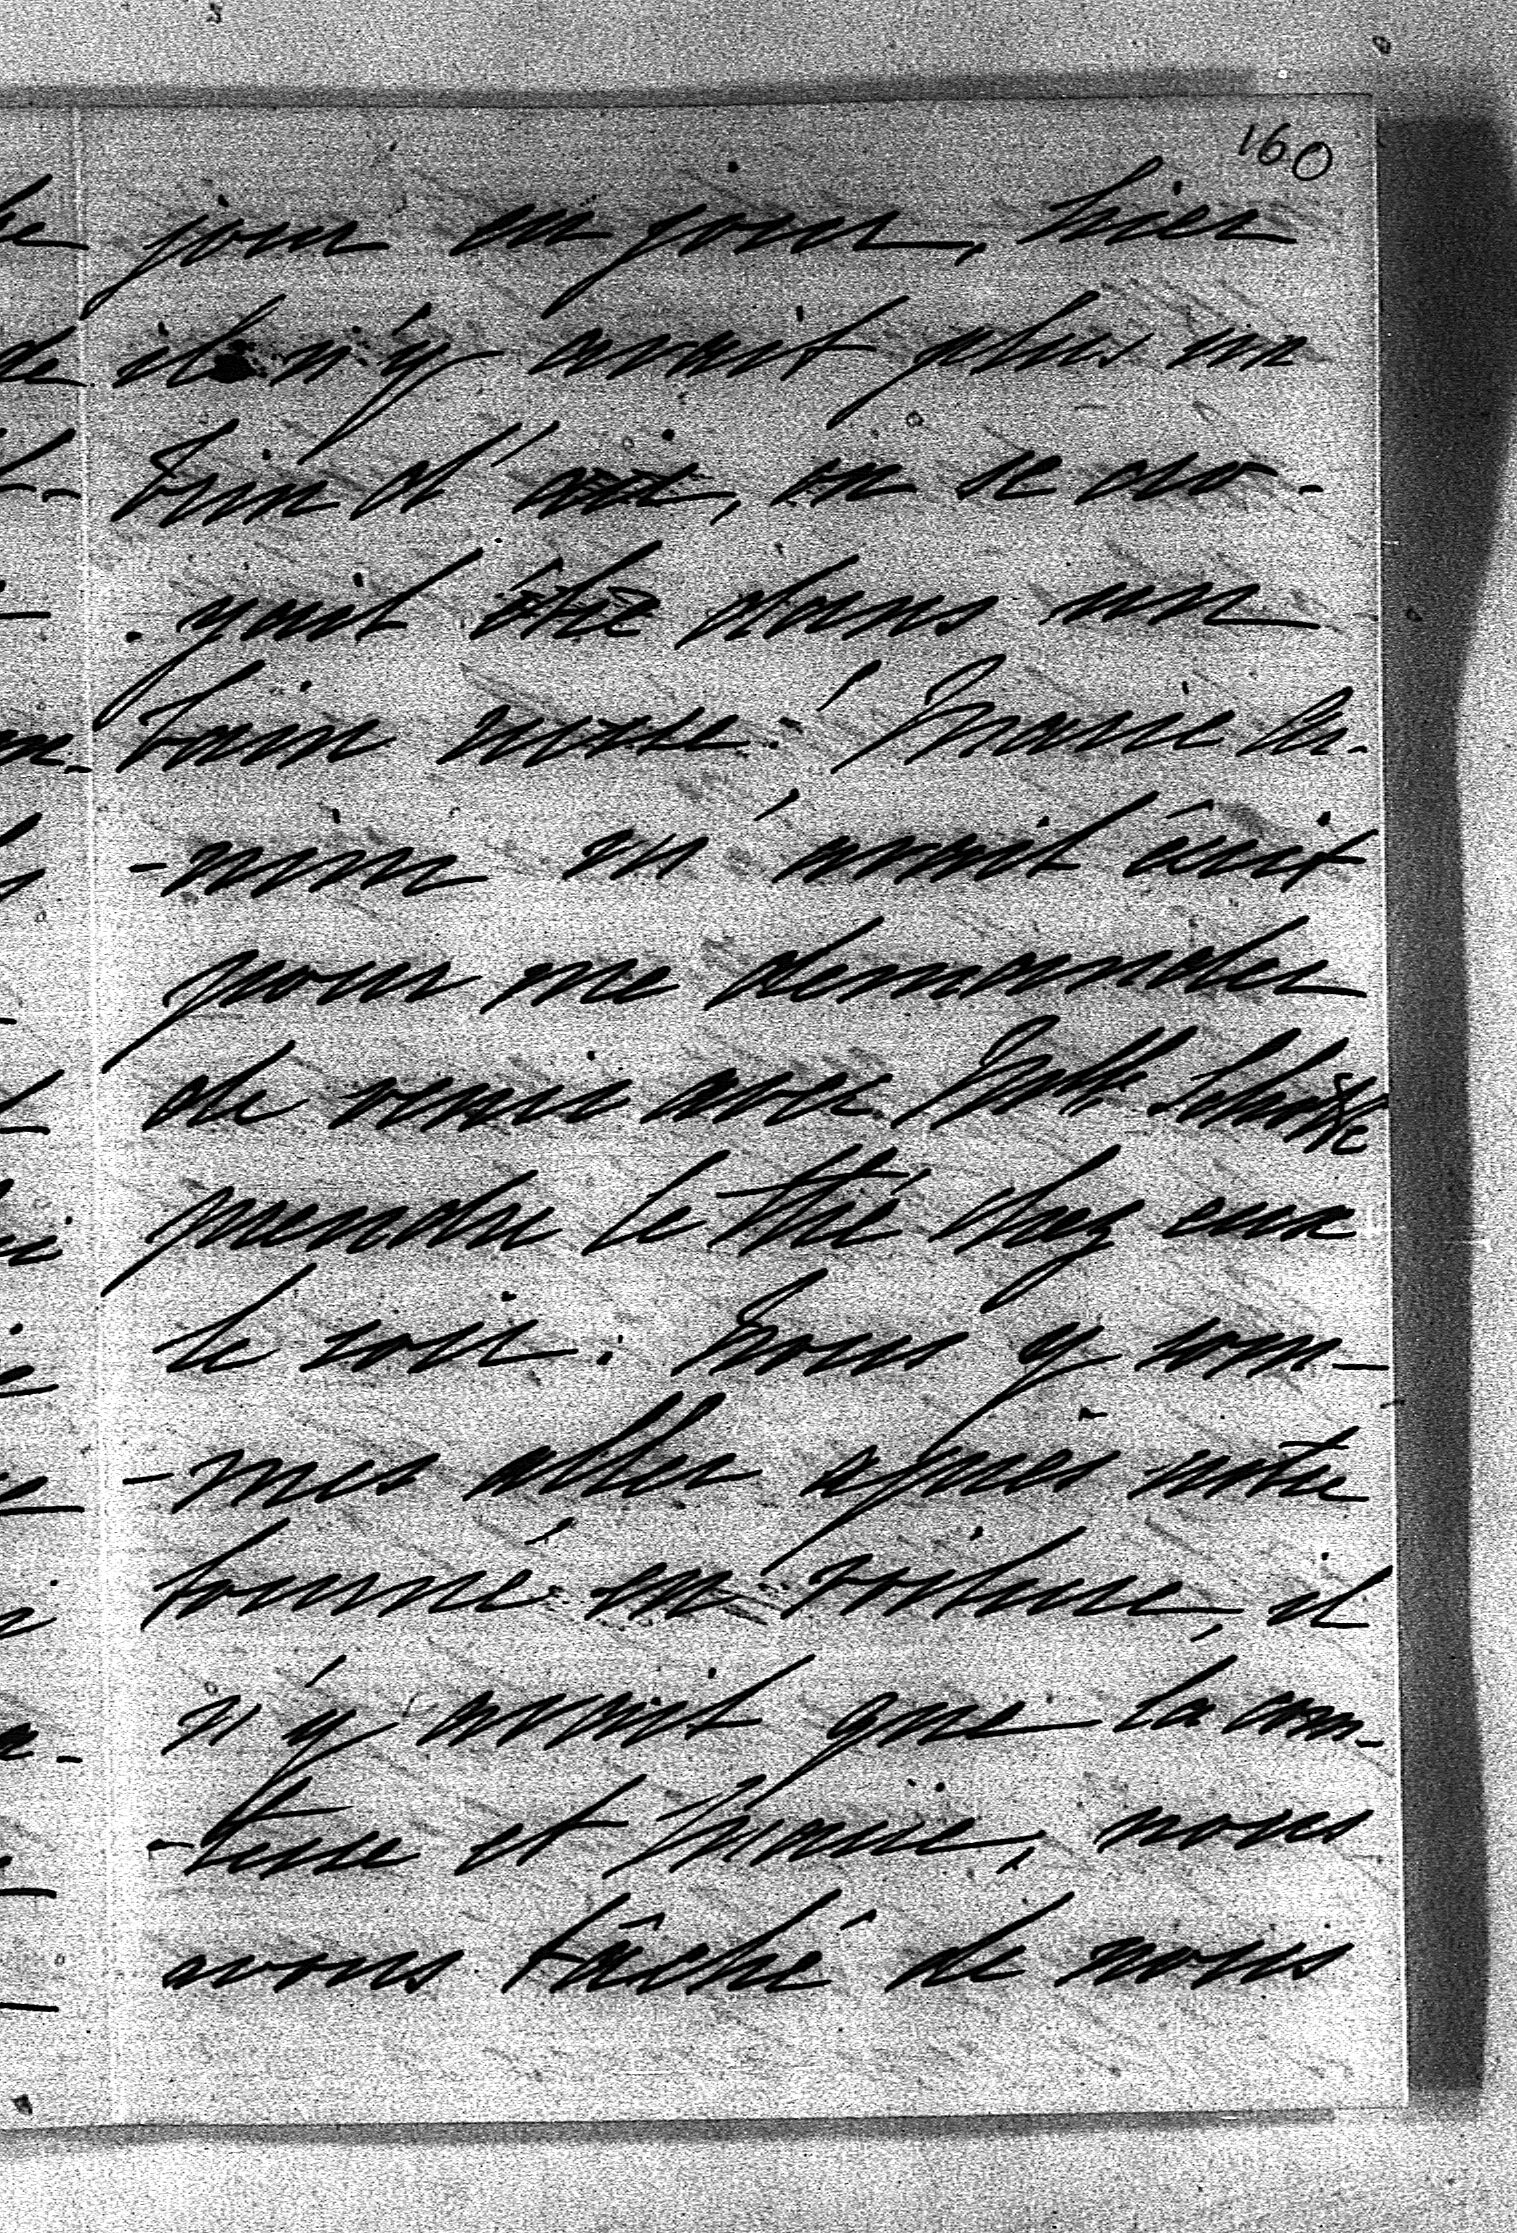 160
jour en jour, hier
il n'y avait plus un
brin d'air, on se cro-
-yait être dans un
bain russe. Marie Ba-
-nou m'avait écrit
pour me demander
de venir avec
prendre le thé chez eux
le soir. Nous y som-
-mes allés après notre
tournée en voiture, il
n'y avait que la com-
-tesse et Marie, nous
avons tâché de nous